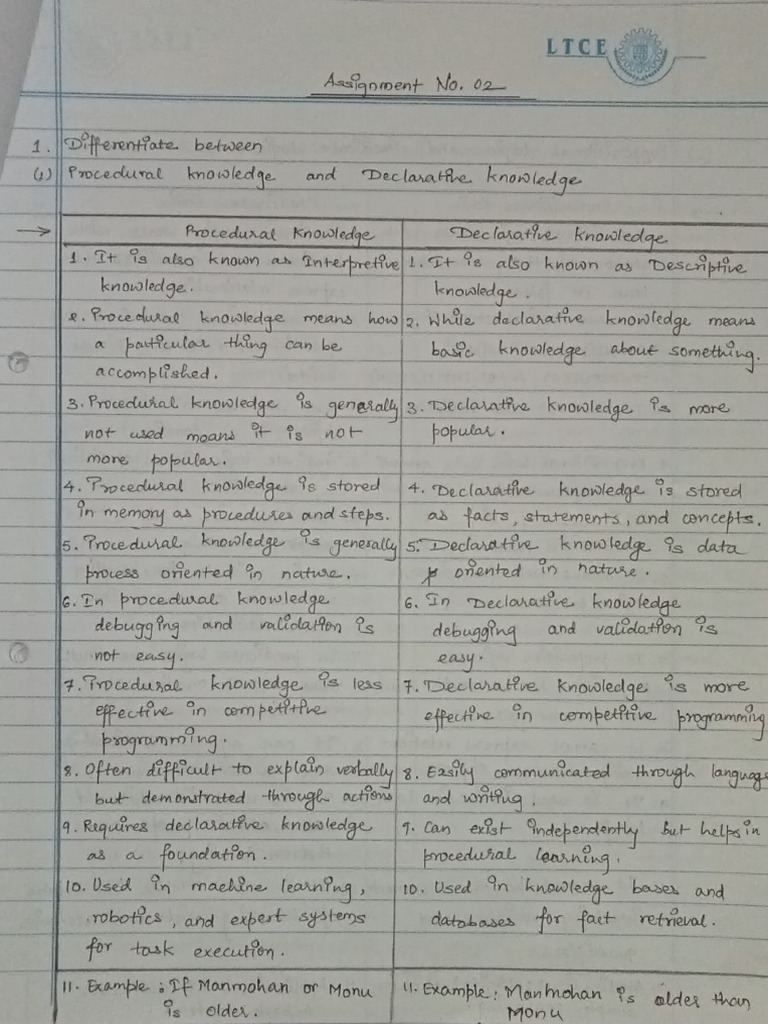 LTCE
Assignment No. 02
1. Differentiate between
(i) Procedural knowledge and Declarative knowledge
→ Procedural Knowledge
Declarative Knowledge
1. It is also known as Interpretive
knowledge.
1. It is also known as Descriptive
knowledge.
2. Procedural knowledge means how
a particular thing can be
accomplished.
2. While declarative knowledge means
basic knowledge about something.
3. Procedural knowledge is generally
not used means it is not
more popular.
3. Declarative knowledge is more
popular.
4. Procedural knowledge is stored
in memory as procedures and steps.
4. Declarative knowledge is stored
as facts, statements, and concepts.
5. Procedural knowledge is generally
process oriented in nature.
5. Declarative knowledge is data
oriented in nature.
6. In procedural knowledge
debugging and validation is
not easy.
6. In Declarative knowledge
debugging and validation is
easy.
7. Procedural knowledge is less
effective in competitive
programming.
7. Declarative knowledge is more
effective in competitive programming
8. Often difficult to explain verbally
but demonstrated through actions
8. Easily communicated through language
and writing.
9. Requires declarative knowledge
as a foundation.
9. Can exist independently but helps in
procedural learning.
10. Used in machine learning,
robotics, and expert systems
for task execution.
10. Used in knowledge bases and
databases for fact retrieval.
11. Example: If Manmohan or Monu
is older.
11. Example: Manmohan is older than
Monu